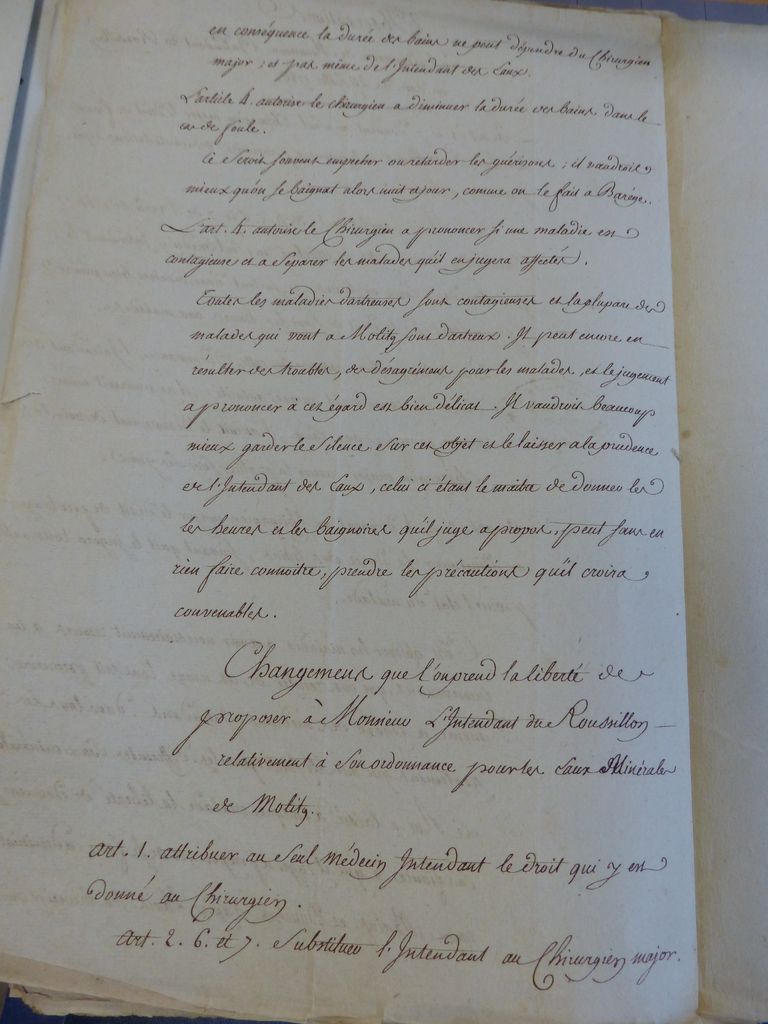 en conséquence la durée des bains ne peut dépendre du Chirurgien
major ; et pas même de l'Intendant des Eaux.
L'article 4. autorise le chirurgien a diminuer la durée des bains dans le
cas de foule.
Ce seroit souvent empecher ou retarder les guérisons ; il vaudroit
mieux qu'on se baignat alors nuit et jour, comme on le fait a Barége.
L'art. 4. autorise le Chirurgien a prononcer si une maladie est
contagieuse et a séparer les malades qu'il en jugera affectés.
Toutes les maladies dartreuses sont contagieuses et la plupart des
malades qui vont a Molitg sont dartreux. Il peut encore en
résulter des troubles, des désagrémens pour les malades, et le jugement
a prononcer à cet égard est bien délicat. Il vaudroit beaucoup
mieux garder le silence sur cet objet et le laisser a la prudence
de l'Intendant des Eaux, celui ci étant le maitre de donner les
les heures et les baignoires qu'il juge apropos, peut sans en
rien faire connoitre, prendre les précautions qu'il croira
convenables.
Changemens que l'on prend la liberté de
proposer à Monsieur L'Intendant du Roussillon
relativement à son ordonnance pour les Eaux Minérales
de Molitg.
Art. 1. attribuer au seul Médecin Intendant le droit qui y est
donné au Chirurgien.
Art. 2. 6. et 7. Substituer l'Intendant au Chirurgien major.